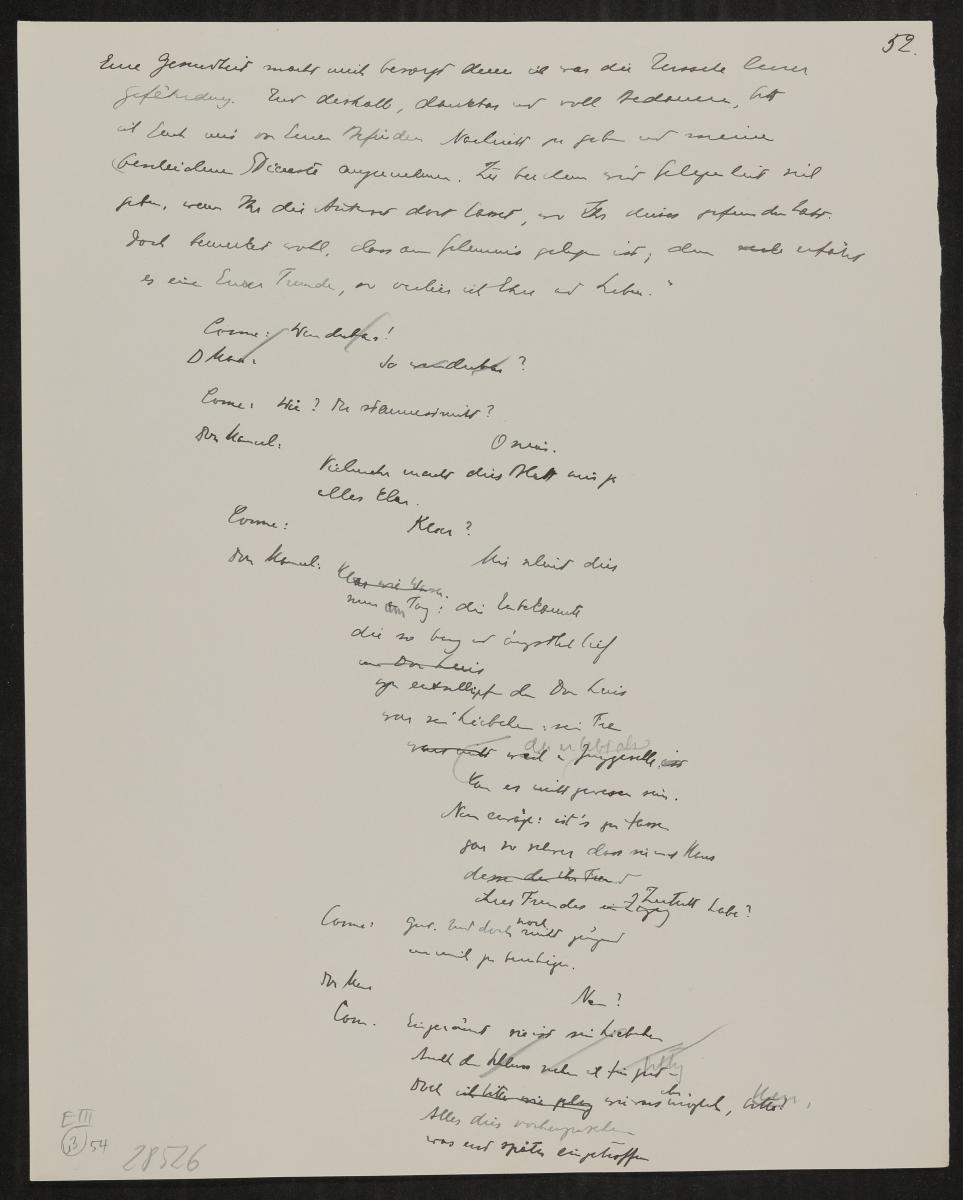 52.
Eure Gesundheit macht mich besorgt denn ich war die Ursache Eurer
Gefährdung. Nur deshalb, dankbar und voll Bedauern, bitt
ich Euch mir von Eurem Befinden Nachricht zu geben und meine
bescheidenen Dienste anzunehmen. Zu beidem wird Gelegenheit sich
geben, wenn Ihr die Antwort dort lasset, wo Ihr dieses gefunden habt.
Doch bemerket wohl, dass am Geheimnis gelegen ist; denn erführ
es einer Eurer Freunde, so verlier ich Ehre und Leben."
Cosme: Wunderbar!
D Man: So wunderbar?
Cosme: Wie? Du staunest nicht?
Don Manuel: O nein.
Vielmehr macht dies Blatt mir ja
alles klar.
Cosme: Klar?
Don Manuel: Mir scheint dies
Klar wie Wasser.
nun am Tag: die Unbekannte
die so bang und ängstlich lief
um Don Luis
zu entschlüpfen dem Don Luis
war sein Liebchen; sein Frau
weil er Junggeselle ist
kann es nicht gewesen sein.
Nun erwäge: ist's zu fassen
gar so schwer dass sie ins Haus
ihres Freundes Zutritt habe?
Cosme: Gut. Und doch noch nicht genügend
um mich zu beruhigen.
Don Man Nun?
Cosm. Eingeräumt sie ist sein Liebchen
Auch den Schluss
Doch wie war's möglich, Herr,
Alles dies vorherzusehen
was erst später eingetroffen
E III
13 54
28526